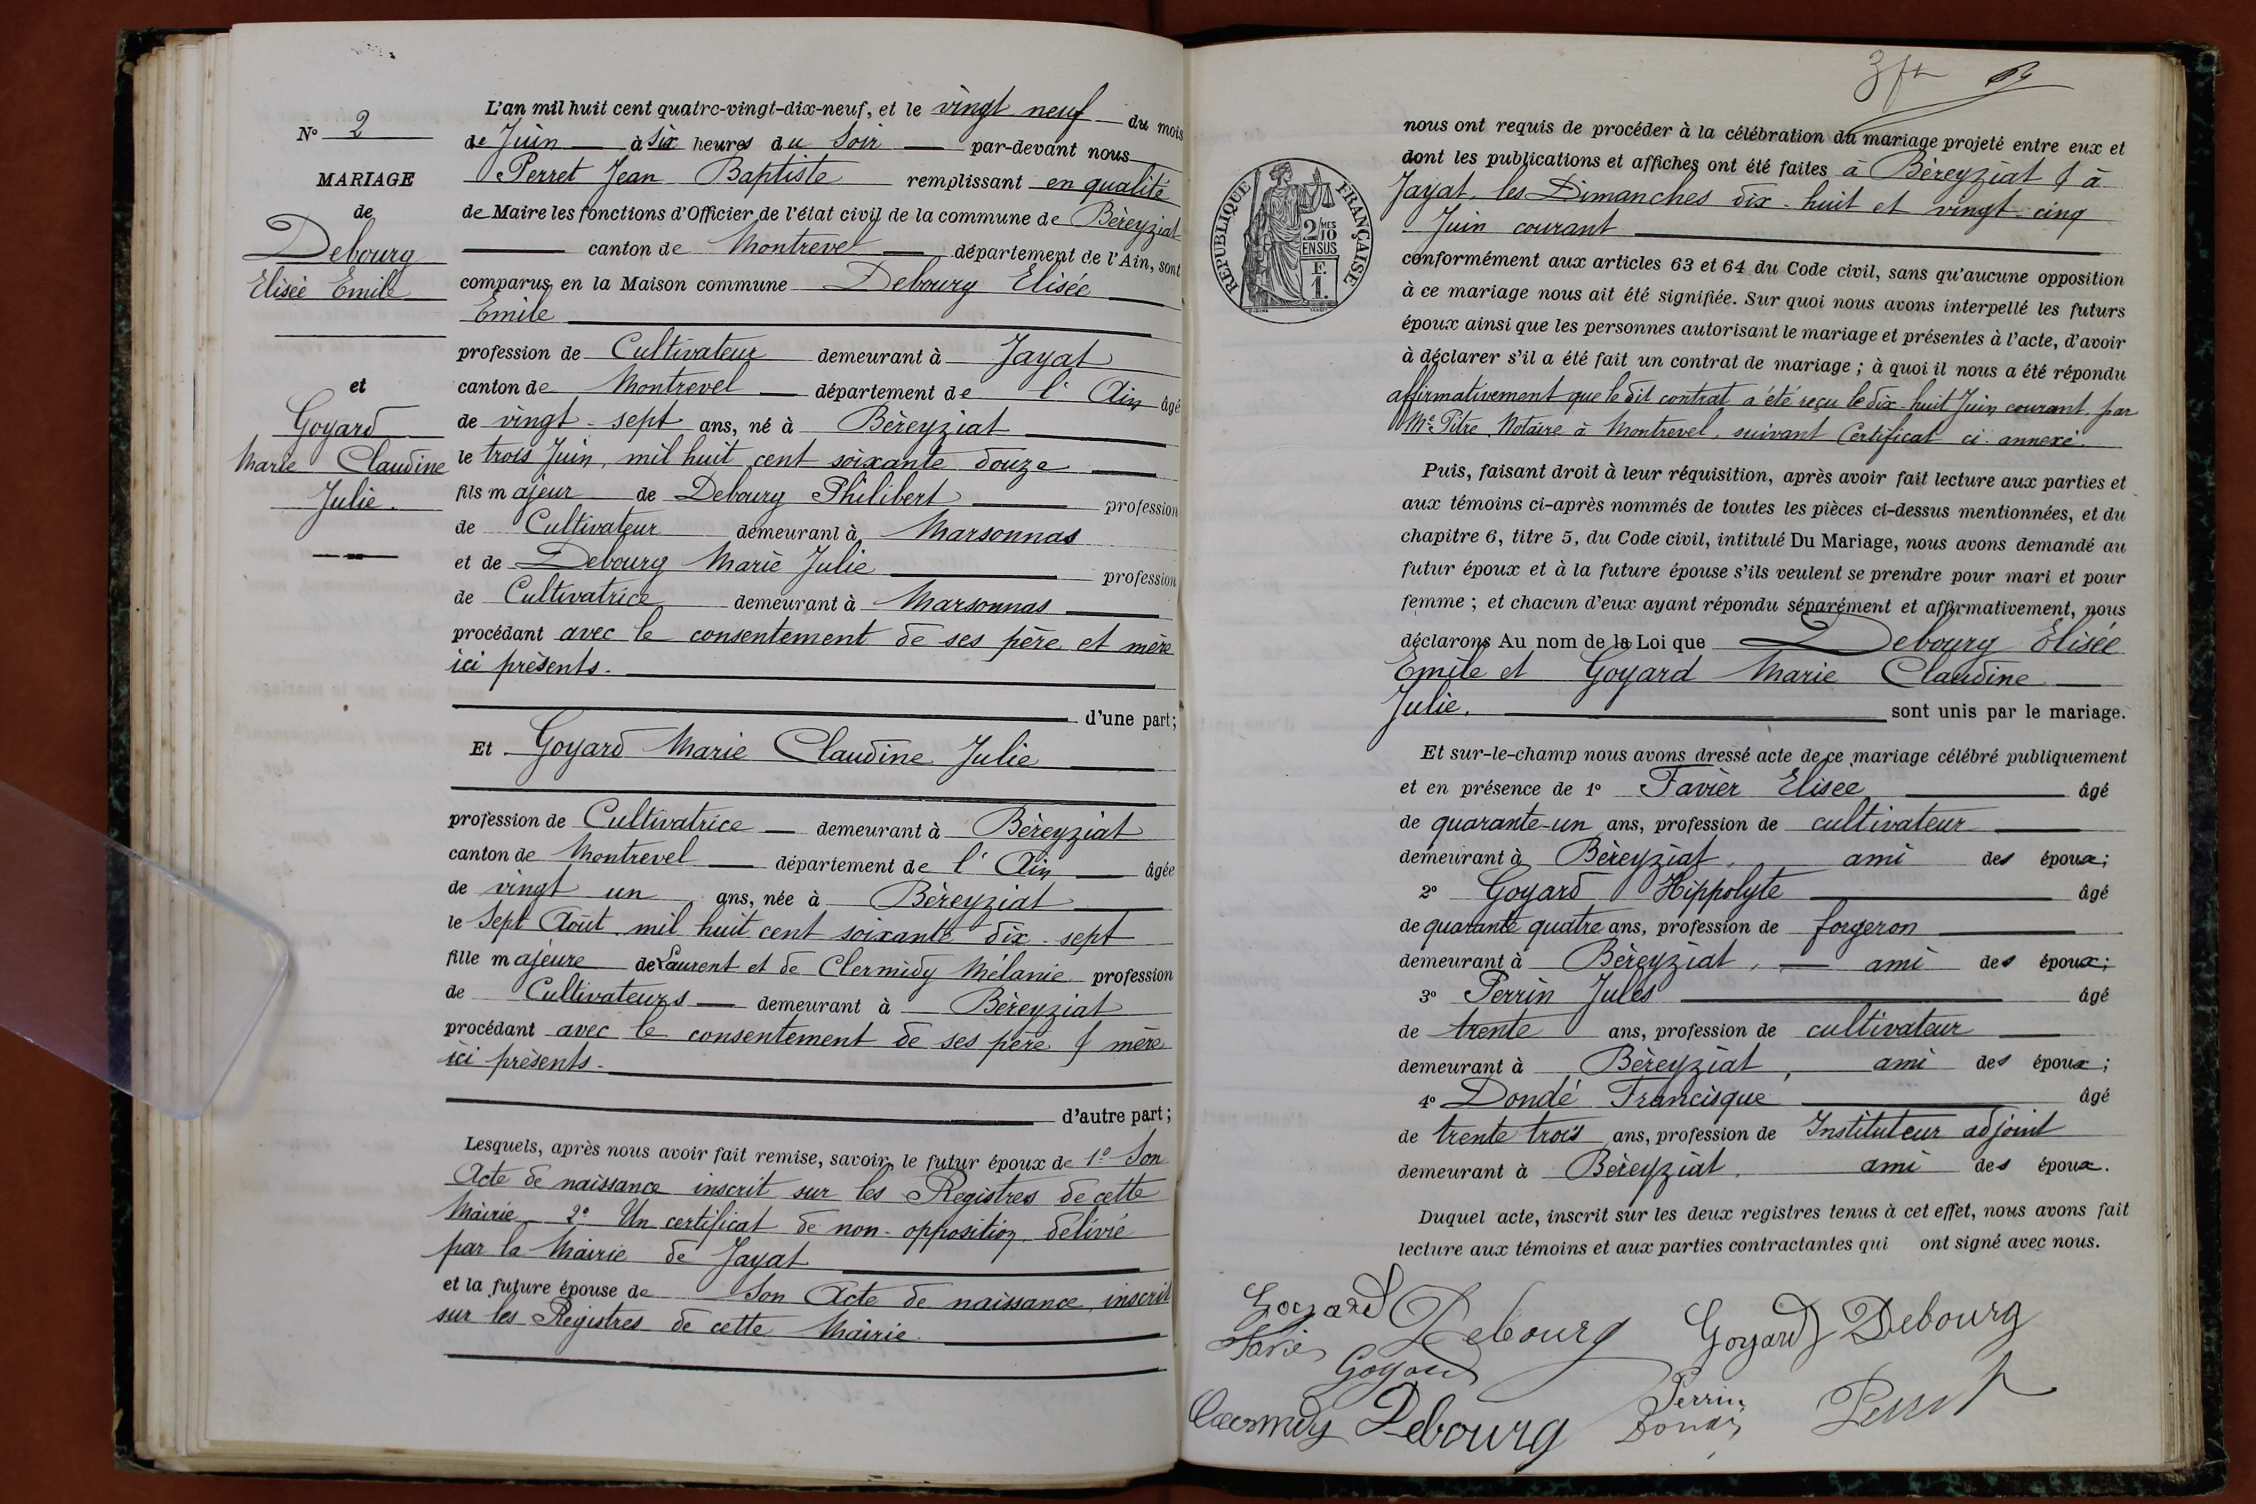 N° 2
MARIAGE
de
Debourg
Elisée Emile
et
Goyard
Marie Claudine
Julie.
L'an mil huit cent quatre-vingt-dix-neuf, et le vingt neuf du mois
de Juin à Six heures du Soir par-devant nous
Perret Jean Baptiste remplissant en qualité
de Maire les fonctions d'Officier de l'état civil de la commune de Béreyziat
canton de Montrevel département de l'Ain, sont
comparus en la Maison commune Debourg Elisée
Emile
profession de Cultivateur demeurant à Jayat
canton de Montrevel département de l'Ain âgé
de vingt-sept ans, né à Béreyziat
le trois Juin, mil huit cent soixante douze
fils majeur de Debourg Philibert profession
de Cultivateur demeurant à Marsonnas
et de Debourg Marie Julie profession
de Cultivatrice demeurant à Marsonnas
procédant avec le consentement de ses père et mère
ici présents.
d'une part;
Et Goyard Marie Claudine Julie
profession de Cultivatrice demeurant à Béreyziat
canton de Montrevel département de l'Ain âgée
de vingt un ans, née à Béreyziat
le Sept Août mil huit cent soixante dix-sept
fille majeure de Laurent et de Clermidy Mélanie profession
de Cultivateurs demeurant à Béreyziat
procédant avec le consentement de ses père & mère
ici présents.
d'autre part;
Lesquels, après nous avoir fait remise, savoir, le futur époux de 1° Son
Acte de naissance inscrit sur les Registres de cette
Mairie 2° Un certificat de non-opposition délivré
par la Mairie de Jayat
et la future épouse de Son Acte de naissance, inscrit
sur les Registres de cette Mairie.
RÉPUBLIQUE FRANÇAISE
2/10 MES
EN SUS
F.
1.
nous ont requis de procéder à la célébration du mariage projeté entre eux et
dont les publications et affiches ont été faites à Béreyziat & à
Jayat, les Dimanches dix-huit et vingt-cinq
Juin courant
conformément aux articles 63 et 64 du Code civil, sans qu'aucune opposition
à ce mariage nous ait été signifiée. Sur quoi nous avons interpellé les futurs
époux ainsi que les personnes autorisant le mariage et présentes à l'acte, d'avoir
à déclarer s'il a été fait un contrat de mariage; à quoi il nous a été répondu
affirmativement que le dit contrat a été reçu le dix-huit Juin courant par
Me Pitre, Notaire à Montrevel, suivant Certificat ci-annexé.
Puis, faisant droit à leur réquisition, après avoir fait lecture aux parties et
aux témoins ci-après nommés de toutes les pièces ci-dessus mentionnées, et du
chapitre 6, titre 5, du Code civil, intitulé Du Mariage, nous avons demandé au
futur époux et à la future épouse s'ils veulent se prendre pour mari et pour
femme; et chacun d'eux ayant répondu séparément et affirmativement, nous
déclarons Au nom de la Loi que Debourg Elisée
Emile et Goyard Marie Claudine
Julie. sont unis par le mariage.
Et sur-le-champ nous avons dressé acte de ce mariage célébré publiquement
et en présence de 1° Favier Elisee âgé
de quarante-un ans, profession de cultivateur
demeurant à Béreyziat, ami des époux;
2° Goyard Hippolyte âgé
de quarante quatre ans, profession de forgeron
demeurant à Béreyziat, ami des époux;
3° Perrin Jules âgé
de trente ans, profession de cultivateur
demeurant à Béreyziat, ami des époux;
4° Dondé Francisque âgé
de trente trois ans, profession de Instituteur adjoint
demeurant à Béreyziat, ami des époux.
Duquel acte, inscrit sur les deux registres tenus à cet effet, nous avons fait
lecture aux témoins et aux parties contractantes qui ont signé avec nous.
Goyard Debourg Goyard Debourg
Favier Goyard
Clermidy Debourg Perrin Perret
Dondé